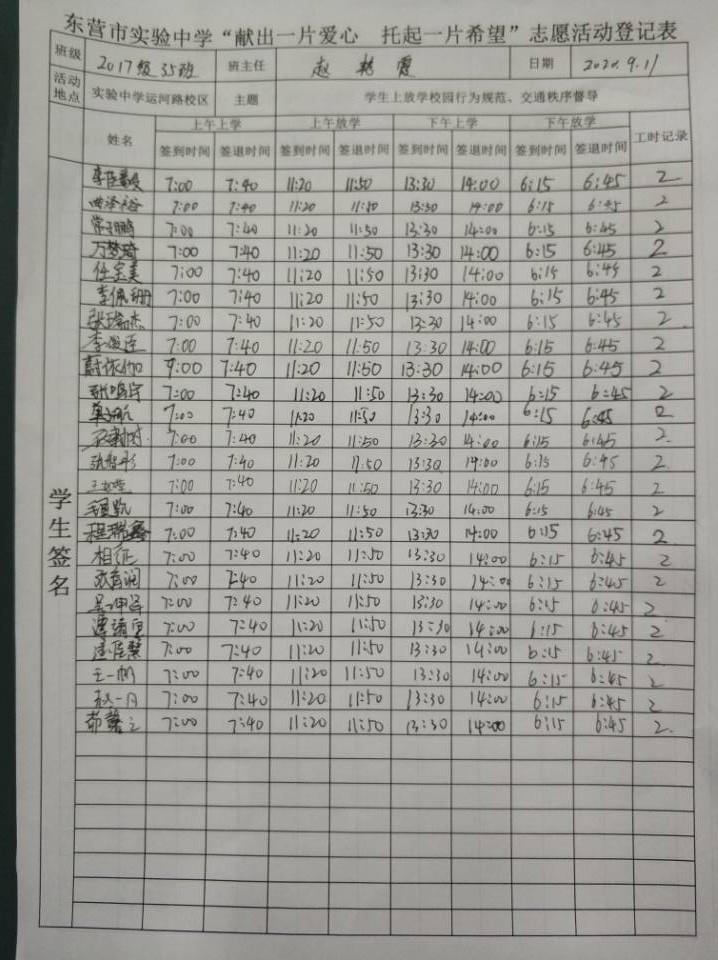 东营市实验中学“献出一片爱心 托起一片希望”志愿活动登记表
班级 2017级35班 班主任 赵艳霞 日期 2020.9.11
活动地点 实验中学运河路校区 主题 学生上放学校园行为规范、交通秩序督导
姓名 上午上学 上午放学 下午上学 下午放学 工时记录
签到时间 签退时间 签到时间 签退时间 签到时间 签退时间 签到时间 签退时间
学生签名
7:00 7:40 11:20 11:50 13:30 14:00 6:15 6:45 2
7:00 7:40 11:20 11:50 13:30 14:00 6:15 6:45 2
7:00 7:40 11:20 11:50 13:30 14:00 6:15 6:45 2
万梦琦 7:00 7:40 11:20 11:50 13:30 14:00 6:15 6:45 2
任宝美 7:00 7:40 11:20 11:50 13:30 14:00 6:15 6:45 2
李佩珊 7:00 7:40 11:20 11:50 13:30 14:00 6:15 6:45 2
张瑞杰 7:00 7:40 11:20 11:50 13:30 14:00 6:15 6:45 2
7:00 7:40 11:20 11:50 13:30 14:00 6:15 6:45 2
7:00 7:40 11:20 11:50 13:30 14:00 6:15 6:45 2
7:00 7:40 11:20 11:50 13:30 14:00 6:15 6:45 2
7:00 7:40 11:20 11:50 13:30 14:00 6:15 6:45 2
7:00 7:40 11:20 11:50 13:30 14:00 6:15 6:45 2
张智彤 7:00 7:40 11:20 11:50 13:30 14:00 6:15 6:45 2
7:00 7:40 11:20 11:50 13:30 14:00 6:15 6:45 2
7:00 7:40 11:20 11:50 13:30 14:00 6:15 6:45 2
程瑞鑫 7:00 7:40 11:20 11:50 13:30 14:00 6:15 6:45 2
相征 7:00 7:40 11:20 11:50 13:30 14:00 6:15 6:45 2
7:00 7:40 11:20 11:50 13:30 14:00 6:15 6:45 2
7:00 7:40 11:20 11:50 13:30 14:00 6:15 6:45 2
7:00 7:40 11:20 11:50 13:30 14:00 6:15 6:45 2
7:00 7:40 11:20 11:50 13:30 14:00 6:15 6:45 2
王一帆 7:00 7:40 11:20 11:50 13:30 14:00 6:15 6:45 2
赵一丹 7:00 7:40 11:20 11:50 13:30 14:00 6:15 6:45 2
7:00 7:40 11:20 11:50 13:30 14:00 6:15 6:45 2